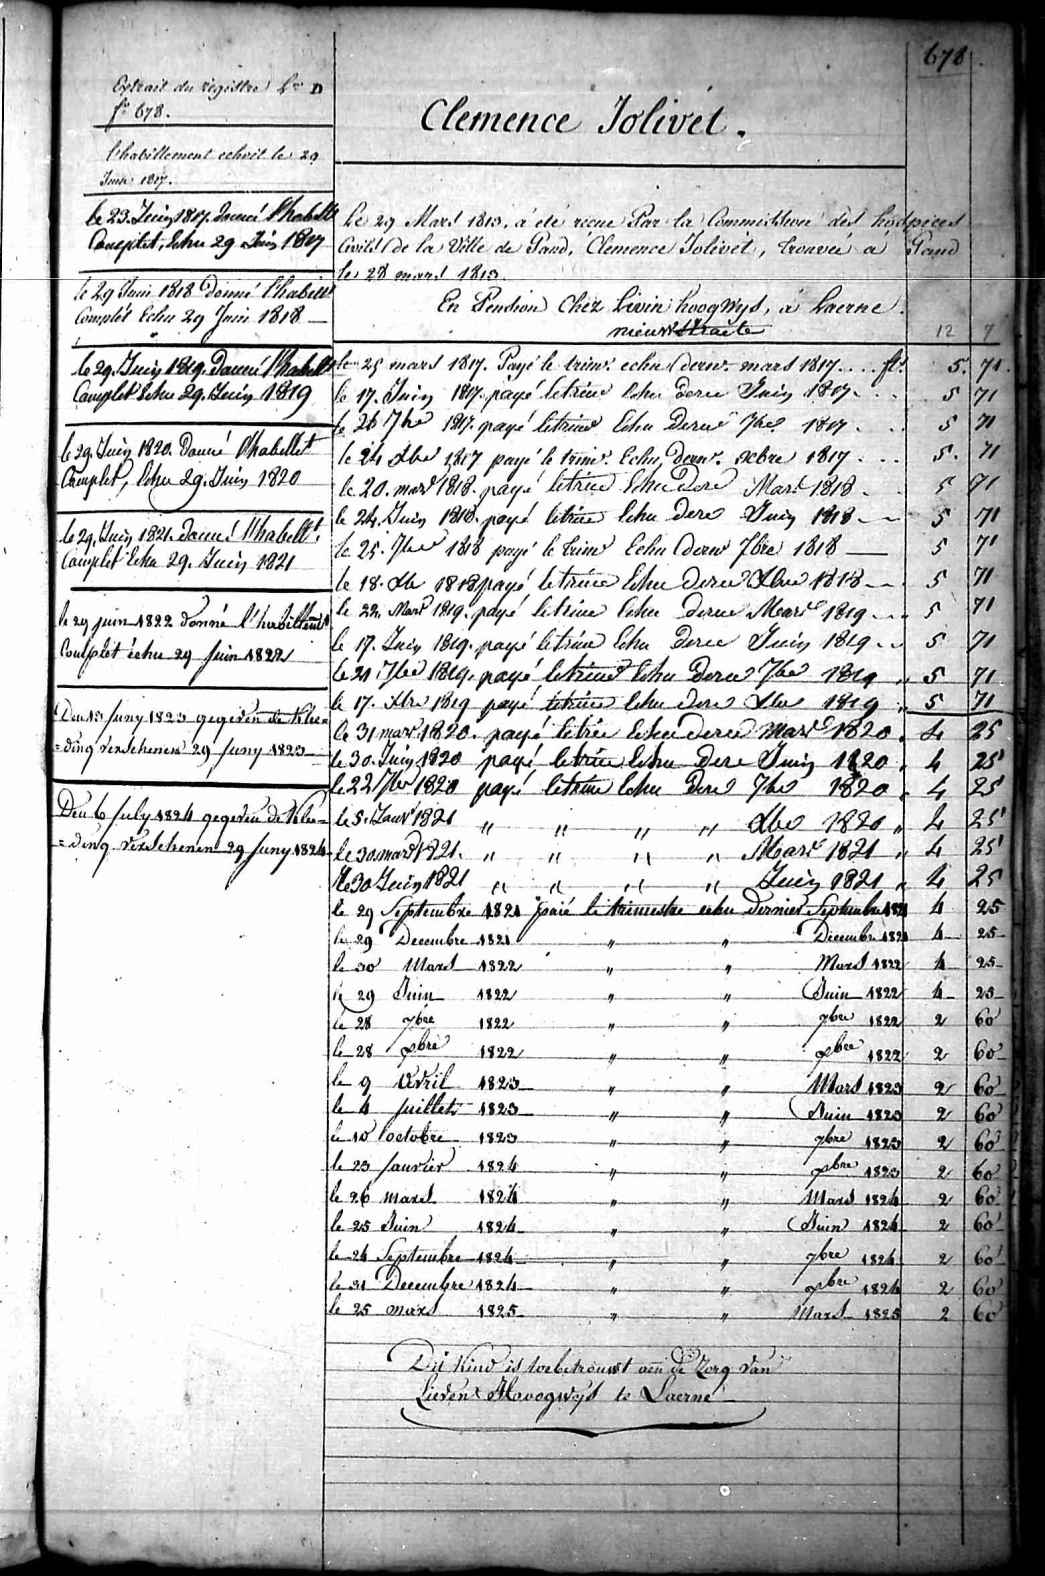 678.
Extrait du registre Lre D
fo 678.
Clemence Jolivet.
l'habillement echoit le 29
Juin 1817.
le 23. Juin 1817. Donné l'habillt
Complet, Echu 29 Juin 1817
le 29 Juin 1818 Donné l'habillt
Complêt Echu 29 Juin 1818
le 29. Juin 1819. Donné l'habillt
Complet Echu 29. Juin 1819
le 29. Juin 1820. Donné l'habillet
Complet, Echu 29. Juin 1820
le 29. Juin 1821. Donné l'habillt
Complêt Echu 29. Juin 1821
le 29 juin 1822 donné l'habillemt
Complèt échu 29 Juin 1822
Den 13 Juny 1823 gegeven de klee=
=ding verschenen 29 Juny 1823
Den 6 July 1824 gegeven de klee=
=ding verschenen 29 Juny 1824
Le 29 Mars 1813, a été reçue Par la Commission des hospices
Civils de la Ville de Gand, Clemence Jolivet, trouvée a Gand
le 28 mars 1813.
En Pension Chez Livin hoogwys, à Laerne.
nieuwstraete 12 7
le 25 mars 1817. Payé le trimr. echu dernr. mars 1817 .... fl. 5. 71.
le 17. Juin 1817. payé le trim Echu Derne Juin 1817. . . 5 71
le 26 7bre 1817. payé le trimr Echu Derne 7bre 1817 . . 5 71
le 24 Xbre 1817 payé le trimr. Echu, dernr. xbre 1817 . . . 5. 71
le 20. mars 1818. payé le trim Echu Dere Mars 1818 . 5 71
le 24. Juin 1818. payé le trim Echu dere Juin 1818 — 5 71
le 25. 7bre 1818 payé le trimr Echu dernr 7bre 1818 — 5 71
le 18. Xbr 1818 payé le trim Echu Derne Xbre 1818 — 5 71
le 22. Mars 1819. payé le trim Echu Derne Mars 1819 . . 5 71
le 17. Juin 1819. payé le trim Echu Derne Juin 1819 . . 5 71
le 21 7bre 1819. payé le trim Echu Derne 7bre 1819 „ 5 71
le 17. Xbre 1819 payé le trim Echu dere Xbre 1819 „ 5 71
le 31 mars 1820. payé le trim Echu derne mars 1820 . 4 25
le 30. Juin 1820 payé le trim Echu Dere Juin 1820 . 4 25
le 22 7bre 1820 payé le trim Echu Dere 7bre 1820 . 4 25
le 5. Janvr 1821 „ „ „ „ Xbre 1820 „ 4 25
le 30 mars 1821. „ „ „ „ Mars 1821 „ 4 25
le 30 Juin 1821 „ „ „ „ Juin 1821 „ 4 25
le 29 Septembre 1821 paié le trimestre echu dernier Septembre 1821 4 25
le 29 Decembre 1821 „ „ Decembre 1821 4 25
le 30 Mars 1822 „ „ Mars 1822 4 25
le 29 Juin 1822 „ „ Juin 1822 4 25
le 28 7bre 1822 „ „ 7bre 1822 2 60
le 28 xbre 1822 „ „ xbre 1822 2 60
le 9 Avril 1823 „ „ Mars 1823 2 60
le 4 Juillet 1823 „ „ Juin 1823 2 60
le 10 octobre 1823 „ „ 7bre 1823 2 60
le 23 Janvier 1824 „ „ xbre 1823 2 60
le 26 mars 1824 „ „ Mars 1824 2 60
le 25 Juin 1824 „ „ Juin 1824 2 60
le 24 Septembre 1824 „ „ 7bre 1824 2 60
le 31 Decembre 1824 „ „ xbre 1824 2 60
le 25 mars 1825 „ „ Mars 1825 2 60
Dit kind is toebetrouwt aen de Zorg van
Lieven Hoogwys te Laerne